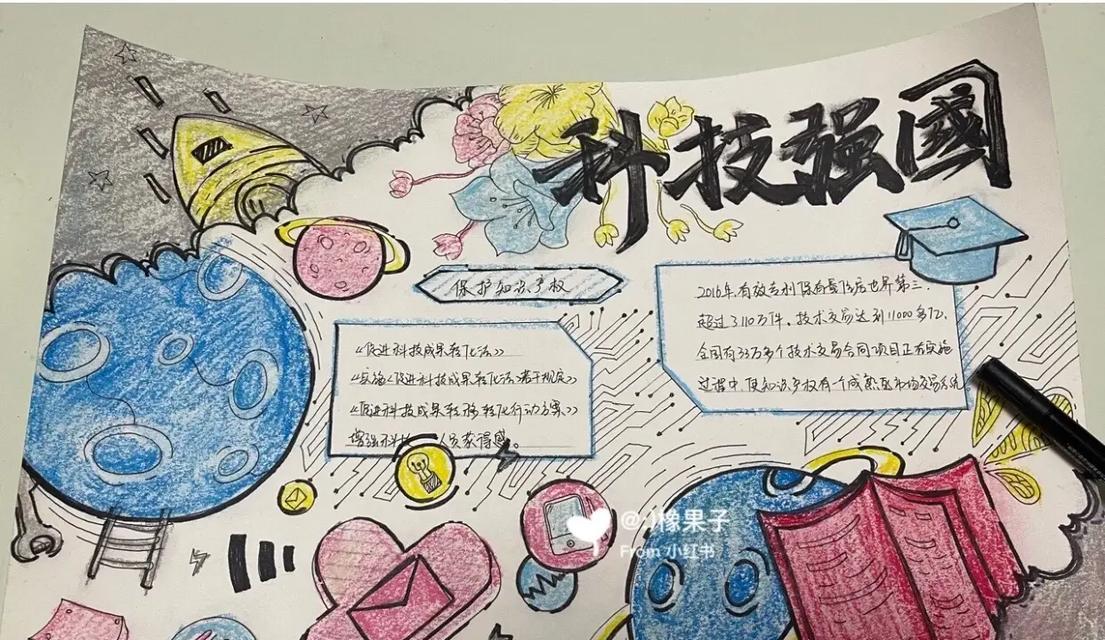 科技强國
保护知识产权
《促进科技成果转化法》
《实施《促进科技成果转化法》若干规定》
《促进科技成果转移转化行动方案》
增强科技 人员获得感。
2016年有效专利保有量位居世界第三,
超过3110万件,技术交易达到11000多亿,
全国有33万多个技术交易合同项目正在实施
过程中,使知识产权有一个成熟 市场交易系统
@小橡果子
From 小红书